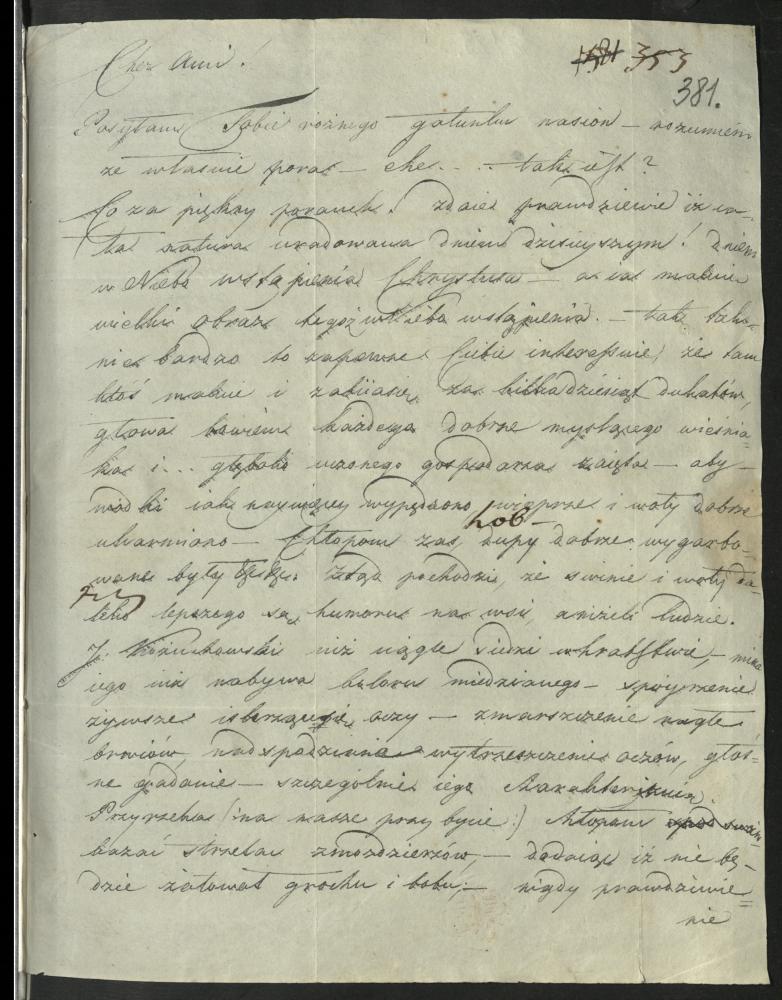 ~~381~~ 353
381.
Cher Ami!
Posyłam Tobie rożnego gatunku nasion – rozumiem
że własnie pora – che . . . . tak iest?
Co za piękny poranek! zdaie prawdziewie iż ca-
ła natura uradowana dniem dzisieyszym! dniem
w Nieba wstąpienia Chrystusa – a ia maluie
wielki obraz tegoż w Nieba wstąpienia. – tak tak
nie bardzo to zapewne Ciebie interessuie, że tam
ktoś maluie i zabiia się za kilkadziesiąt dukatów,
głowa bowiem każdego dobrze myslącego wieśnia-
ka i ... głęboko uczonego gospodarza zaięta – aby
wodki iak naywięcey wypędzono, wieprze i woły dobrze
ukarmiono – Chłopom zaś, dupy dobrze wygarbo-
wane były Ztąd pochodzi, że swinie i woły da-
leko lepszego są humoru na wsi, aniżeli ludzie.
J. Kożuchowski już ciągle siedzi w hrabstwie, – mina
iego iuż nabywa koloru miedzianego – spoyrzenie
żywsze iskrzące się oczy – zmarszczenie nagłe
browiów, nadspodziane wytrzeszczenie oczów, głoś-
ne gadanie – szczególnie iego Charakteryzuia.
Przyrzekał (: na nasze przybycie :) Chłopom
kazać strzelać z mozdzierzów, – dodaiąc iż nie bę-
dzie żałował grochu i bobu; – nigdy prawdziwie
nie